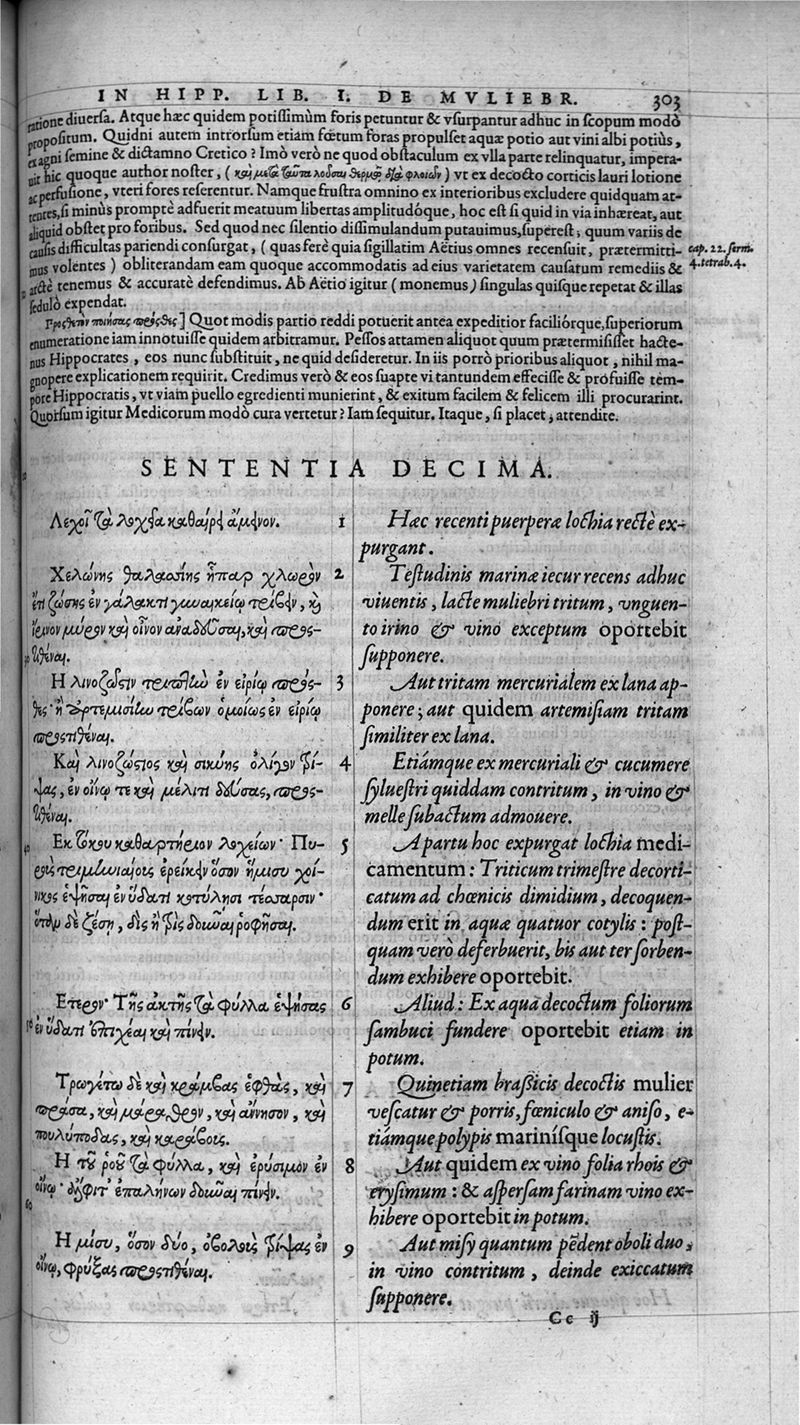 IN HIPP. LIB. I. DE MVLIEBR. 303
ratione diuersa. Atque hæc quidem potissimùm foris petuntur & vsurpantur adhuc in scopum modò
propositum. Quidni autem introrsum etiam fœtum foras propulset aquæ potio aut vini albi potiùs,
ex agni semine & dictamno Cretico? Imò verò ne quod obstaculum ex vlla parte relinquatur, impera-
uit hic quoque author noster, (καὶ μετὰ ταῦτα λοῦσαι θερμῷ ἀπὸ φλοιῶν) vt ex decocto corticis lauri lotione
ac perfusione, vteri fores reserentur. Namque frustra omnino ex interioribus excludere quidquam at-
tentes, si minùs promptè adfuerit meatuum libertas amplitudóque, hoc est si quid in via inhæreat, aut
aliquid obstet pro foribus. Sed quod nec silentio dissimulandum putauimus, superest, quum variis de
causis difficultas pariendi consurgat, (quas ferè quia sigillatim Aëtius omnes recensuit, prætermitti-
mus volentes) obliterandam eam quoque accommodatis ad eius varietatem causatum remediis &
arctè tenemus & accuratè defendimus. Ab Aëtio igitur (monemus) singulas quisque repetat & illas
sedulò expendat.
cap. 22. serm.
4. tetrab. 4.
Προσθετὸν ποιήσας προσθες] Quot modis partio reddi potuerit antea expeditior faciliórque, superiorum
enumeratione iam innotuisse quidem arbitramur. Pessos attamen aliquot quum prætermisisset hacte-
nus Hippocrates, eos nunc substituit, ne quid desideretur. In iis porrò prioribus aliquot, nihil ma-
gnopere explicationem requirit. Credimus verò & eos suapte vi tantundem effecisse & profuisse tem-
pore Hippocratis, vt viam puello egredienti munierint, & exitum facilem & felicem illi procurarint.
Quorsum igitur Medicorum modò cura vertetur? Iam sequitur. Itaque, si placet, attendite.
SENTENTIA DECIMA.
Λεχοῖ τὰ λοχεῖα καθαίρει ἄμεινον.
Χελώνης θαλασσίης ἧπαρ χλωρὸν
ἔτι ζώσης ἐν γάλακτι γυναικείῳ τρίβειν, καὶ
ἴρινον μύρον καὶ οἶνον ἀναδεῦσαι, καὶ προσ-
θεῖναι.
Η λινοζῶστιν τριπτὴν ἐν εἰρίῳ προσ-
θες· ἢ ἀρτεμισίην τρίβων ὁμοίως ἐν εἰρίῳ
προστιθέναι.
Καὶ λινοζώστιος καὶ σικύης ὀλίγον τρί-
ψας, ἐν οἴνῳ τε καὶ μέλιτι δεύσας, προσ-
θεῖναι.
Εκ τόκου καθαρτήριον λοχείων· Πυ-
ροὺς τριμηνιαίους ἐρείκειν ὅσον ἥμισυ χοί-
νικος ἑψῆσαι ἐν ὕδατι κοτύλησι τέσσαρσιν·
ὁπόταν δὲ ζέσῃ, δὶς ἢ τρὶς δοῦναι ῥοφῆσαι.
Ετερον· Τῆς ἀκτῆς τὰ φύλλα ἑψήσας
ἐν ὕδατι ἐπιχέαι καὶ πίνειν.
Τρωγέτω δὲ καὶ κράμβας ἑφθὰς, καὶ
πράσα, καὶ μάραθρον, καὶ ἄννησον, καὶ
πουλύποδας, καὶ καράβους.
Η τοῦ ῥοῦ τὰ φύλλα, καὶ ἐρύσιμον ἐν
οἴνῳ· ἄλφιτ' ἐπαλήνων δοῦναι πίνειν.
Η μίσυ, ὅσον δύο, ὀβολοὺς τρίψας ἐν
οἴνῳ, φρύξας προστιθέναι.
1 Hæc recenti puerperæ lochia rectè ex-
purgant.
2 Testudinis marinæ iecur recens adhuc
viuentis, lacte muliebri tritum, vnguen-
to irino & vino exceptum oportebit
supponere.
3 Aut tritam mercurialem ex lana ap-
ponere; aut quidem artemisiam tritam
similiter ex lana.
4 Etiámque ex mercuriali & cucumere
syluestri quiddam contritum, in vino &
melle subactum admouere.
5 A partu hoc expurgat lochia medi-
camentum: Triticum trimestre decorti-
catum ad chœnicis dimidium, decoquen-
dum erit in aquæ quatuor cotylis: post-
quam verò deferbuerit, bis aut ter sorben-
dum exhibere oportebit.
6 Aliud: Ex aqua decoctum foliorum
sambuci fundere oportebit etiam in
potum.
7 Quinetiam brassicis decoctis mulier
vescatur & porris, fœniculo & aniso, e-
tiámque polypis marinísque locustis.
8 Aut quidem ex vino folia rhois &
erysimum: & aspersam farinam vino ex-
hibere oportebit in potum.
9 Aut misy quantum pēdent oboli duo,
in vino contritum, deinde exiccatum
supponere.
Cc ij